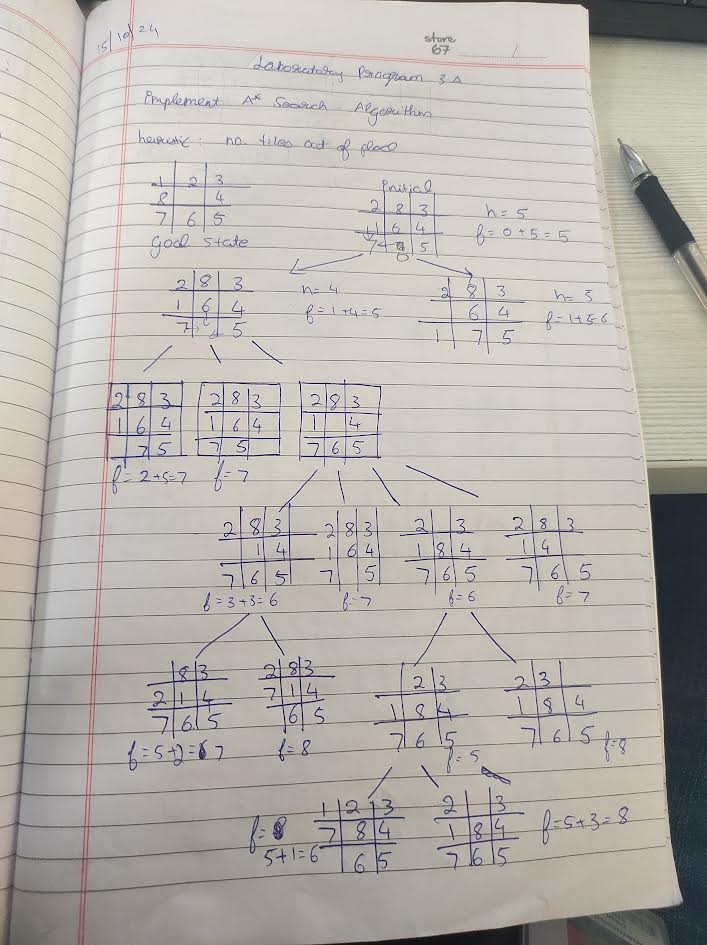 15/10/24
store
67
Laboratory Program 3A
Implement A* Search Algorithm
heuristic: no. tiles out of place
1 2 3
8 4
7 6 5
Goal State
Initial
2 8 3
1 6 4
7 5
h = 5
f = 0+5 = 5
2 8 3
1 6 4
7 5
h = 4
f = 1+4=5
2 8 3
6 4
1 7 5
h= 5
f = 1+5=6
2 8 3
1 6 4
7 5
f = 2+5=7
2 8 3
1 6 4
7 5
f = 7
2 8 3
1 4
7 6 5
2 8 3
1 4
7 6 5
f = 3+3=6
2 8 3
1 6 4
7 5
f=7
2 3
1 8 4
7 6 5
f=6
2 8 3
1 4
7 6 5
f=7
8 3
2 1 4
7 6 5
f=5+2=7
2 8 3
7 1 4
6 5
f=8
2 3
1 8 4
7 6 5
f=5
2 3
1 8 4
7 6 5
f=8
f=
5+1=6
1 2 3
7 8 4
6 5
2 3
1 8 4
7 6 5
f=5+3=8